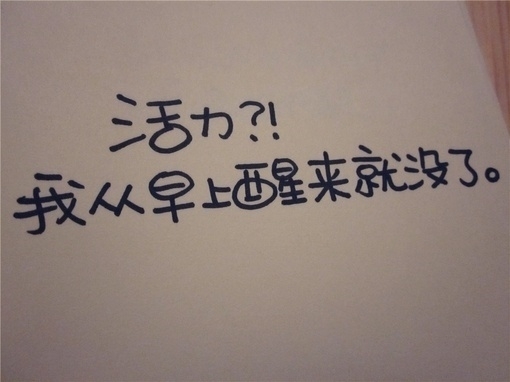 活力?!
我从早上醒来就没了。